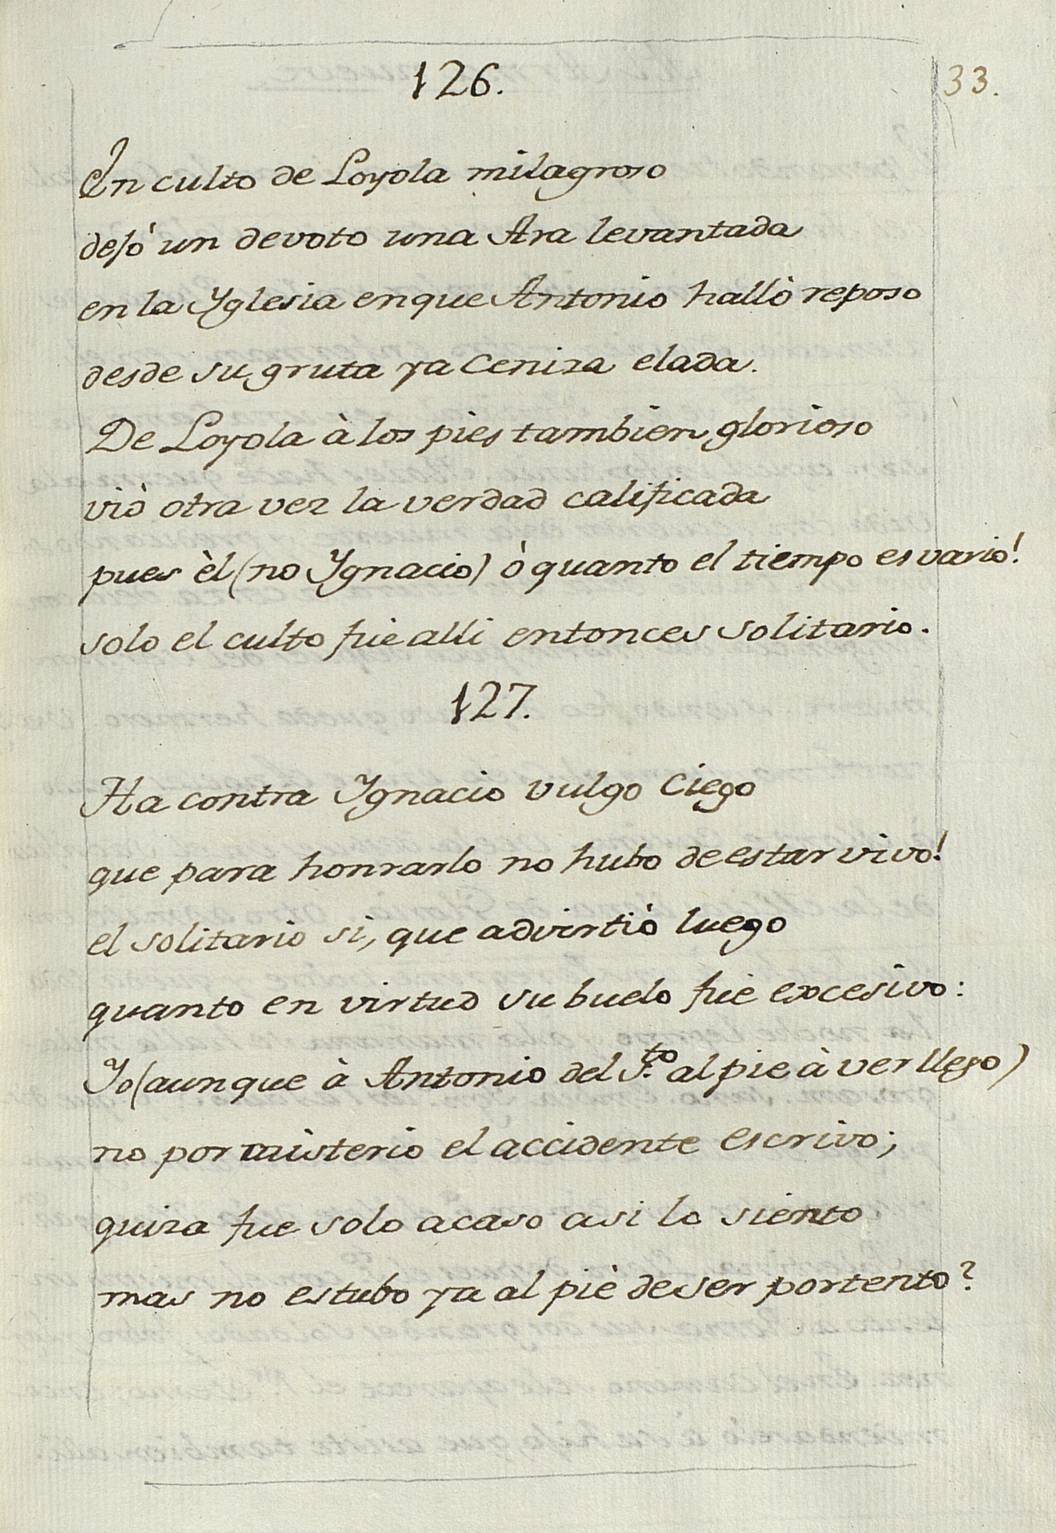 126.
33.
En culto de Loyola milagroso
dejó un devoto una Ara levantada
en la Yglesia en que Antonio hallò reposo
desde su gruta ya Ceniza elada.
De Loyola à los pies tambien glorioso
viò otra vez la verdad calificada
pues èl (no Ygnacio) ò quanto el tiempo es vario!
solo el culto fue alli entonces solitario.
127.
Ha contra Ygnacio vulgo Ciego
que para honrarlo no hubo de estar vivo!
el solitario si, que advirtiò luego
quanto en virtud su buelo fuè excesivo:
Yo (aunque à Antonio del S.to al pie à ver llego)
no por misterio el accidente escrivo;
quiza fue solo acaso asi lo siento
mas no estubo ya al piè de ser portento?